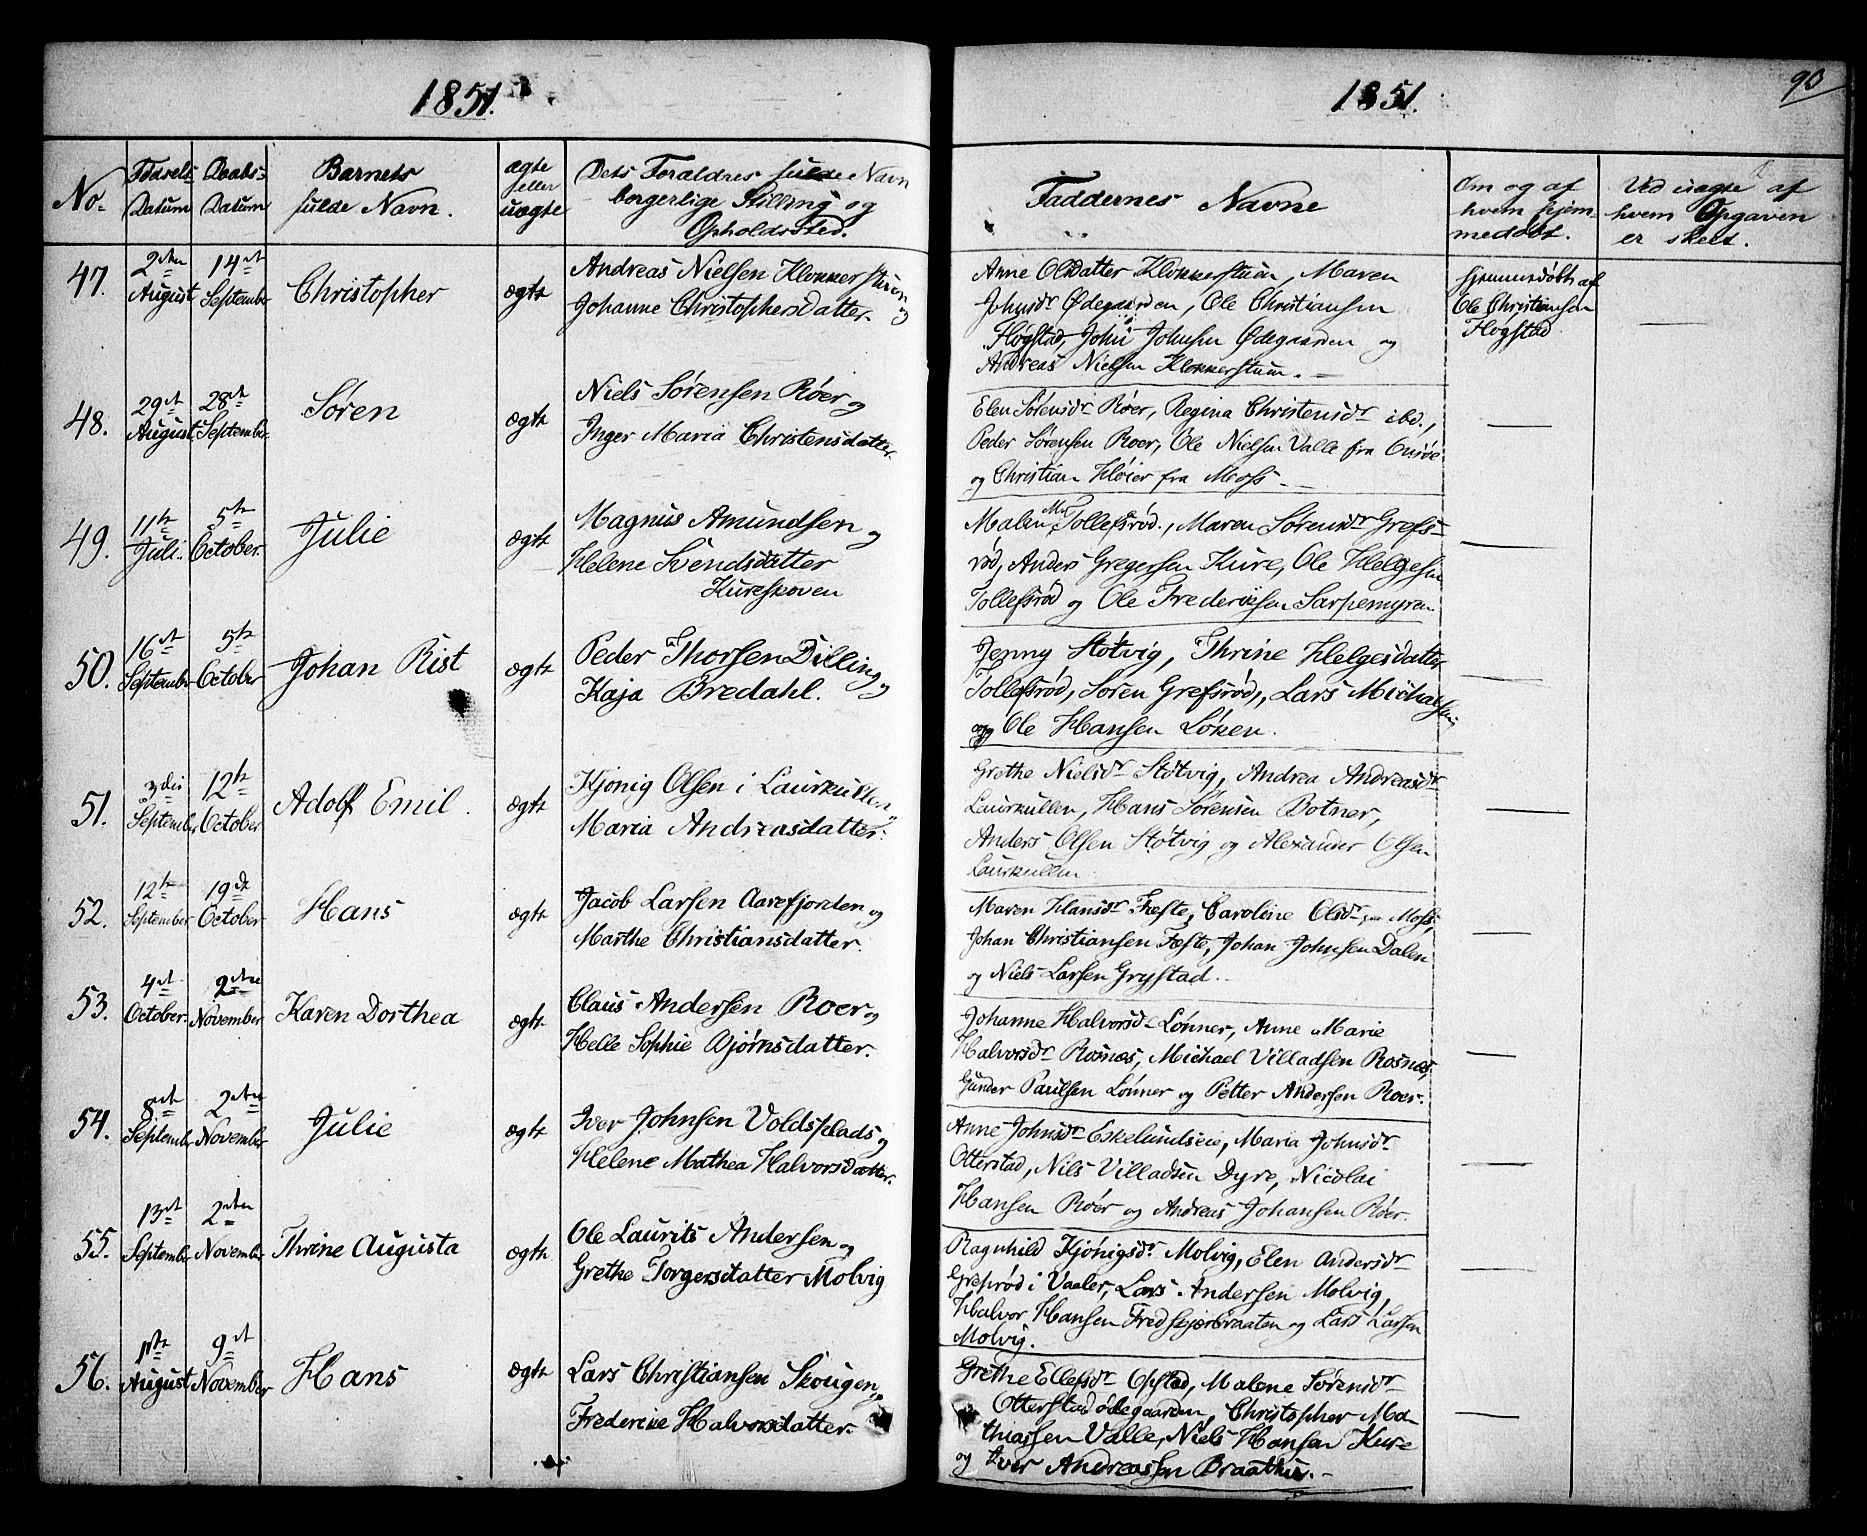 1851.
No.
Fødsels-
Datum
Daabs-
Datum
Barnets
fulde Navn.
ægte
eller
uægte
Dets Forældres fulde Navn
borgerlige Stilling og
Opholdssted.
47.
2den
August
14de
September
Christopher
ægte
Andreas Nielsen Klokkerstuen og
Johanne Christophersdatter.
48.
29de
August
28de
September
Søren
ægte
Niels Sørensen Röer og
Inger Maria Christensdatter.
49.
11te
Juli
5te
October
Julie
ægte
Magnus Amundsen og
Helene Svendsdatter
Kureskoven
50.
16de
September
5te
October
Johan Rist
ægte
Peder Thorsen Dilling og
Kaja Bredahl.
51.
3die
September
12te
October
Adolf Emil.
ægte
Kjønig Olsen i Laurkullen
Maria Andreasdatter.
52.
12te
September
19de
October
Hans
ægte
Jacob Larsen Aarefjorden og
Marthe Christiansdatter.
53.
4de
October
2den
November
Karen Dorthea
ægte
Claus Andersen Roer og
Helle Sophie Bjørnsdatter.
54.
8de
September
2den
November
Julie
ægte
Iver Johnsen Voldsplads og
Helene Mathea Halvorsdatter.
55.
13de
September
2den
November
Thrine Augusta
ægte
Ole Laurits Andersen og
Grethe Torgersdatter Molvig
56.
1ste
August
9de
November
Hans
ægte
Lars Christiansen Skougen
Frederike Halvorsdatter.
1851.
90
Faddernes Navne
Om og af
hvem hjem-
medøbt.
Ved uægte af
hvem Opgaven
er skeet.
Anne Olsdatter Klokkerstuen, Maren
Johnsdr Ødegaarden, Ole Christiansen
Flogstad, John Johnsen Ødegaarden og
Andreas Nielsen Klokkerstuen.
Hjemmedøbt af
Ole Christiansen
Flogstad
Elen Sørensdr Röer, Regina Christensdr ibd.,
Peder Sørensen Roer, Ole Nielsen Valle fra Onsöe
og Christian Kløier fra Moss.
Malen Tollefsrød, Maren Sørensdr Grefs-
rød, Anders Gregersen Kure, Ole Helgesen
Tollefsrød og Ole Frederiksen Sarpemyren
Jenny Støtvig, Thrine Helgesdatter
Tollefsrød, Søren Grefsrød, Lars Michaelsen
og Ole Hansen Løken.
Grethe Nielsdr Støtvig, Andrea Andreasdr
Laurkullen, Hans Sørensen Botner,
Anders Olsen Støtvig og Alexander Olsen
Laurkullen
Maren Hansdr Feste, Caroline Olsdr fra Moss,
Johan Christiansen Feste, Johan Johnsen Dalen
og Niels Larsen Grystad.
Johanne Halvorsdr Lønner, Anne Marie
Halvorsdr Rosnæs, Michael Villadsen Rosnæs,
Gunder Paulsen Lønner og Petter Andersen Roer.
Anne Johnsdr Eskelundseie, Maria Johnsdr
Otterstad, Nils Villadsen Dyre, Nicolai
Hansen Röer og Andreas Johansen Röer.
Ragnhild Kjönigsdr Molvig, Elen Andersdr
Grefsrød i Vaaler, Lars Andersen Molvig,
Halvor Hansen Fredskjærbraaten og Lars Larsen
Molvig.
Grethe Ellefsdr Opstad, Malene Sørensdr
Otterstadødegaarden, Christopher Ma-
thiassen Valle, Niels Hansen Kure
og Iver Andreassen Braathen.